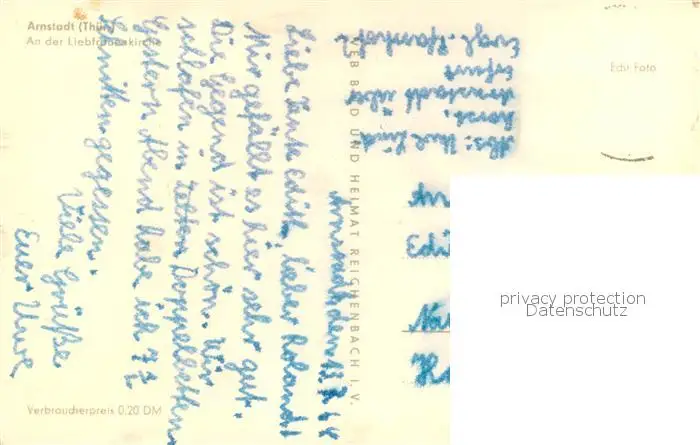 Arnstadt (Thür.)
An der Liebfrauenkirche
Echt Foto
VEB BILD UND HEIMAT REICHENBACH I. V.
Verbraucherpreis 0,20 DM
Arnstadt, den 13.7.64
Liebe Tante Edith, lieber Roland!
Mir gefällt es hier sehr gut.
Die Gegend ist schön. Wir
schlafen in Doppelbetten
Gestern Abend habe ich 7 ½
Schnitten gegessen.
Viele Grüße
Euer Uwe
Abs: Uwe
Arnstadt über
Erfurt
Evgl.
An
Edi
privacy protection
Datenschutz